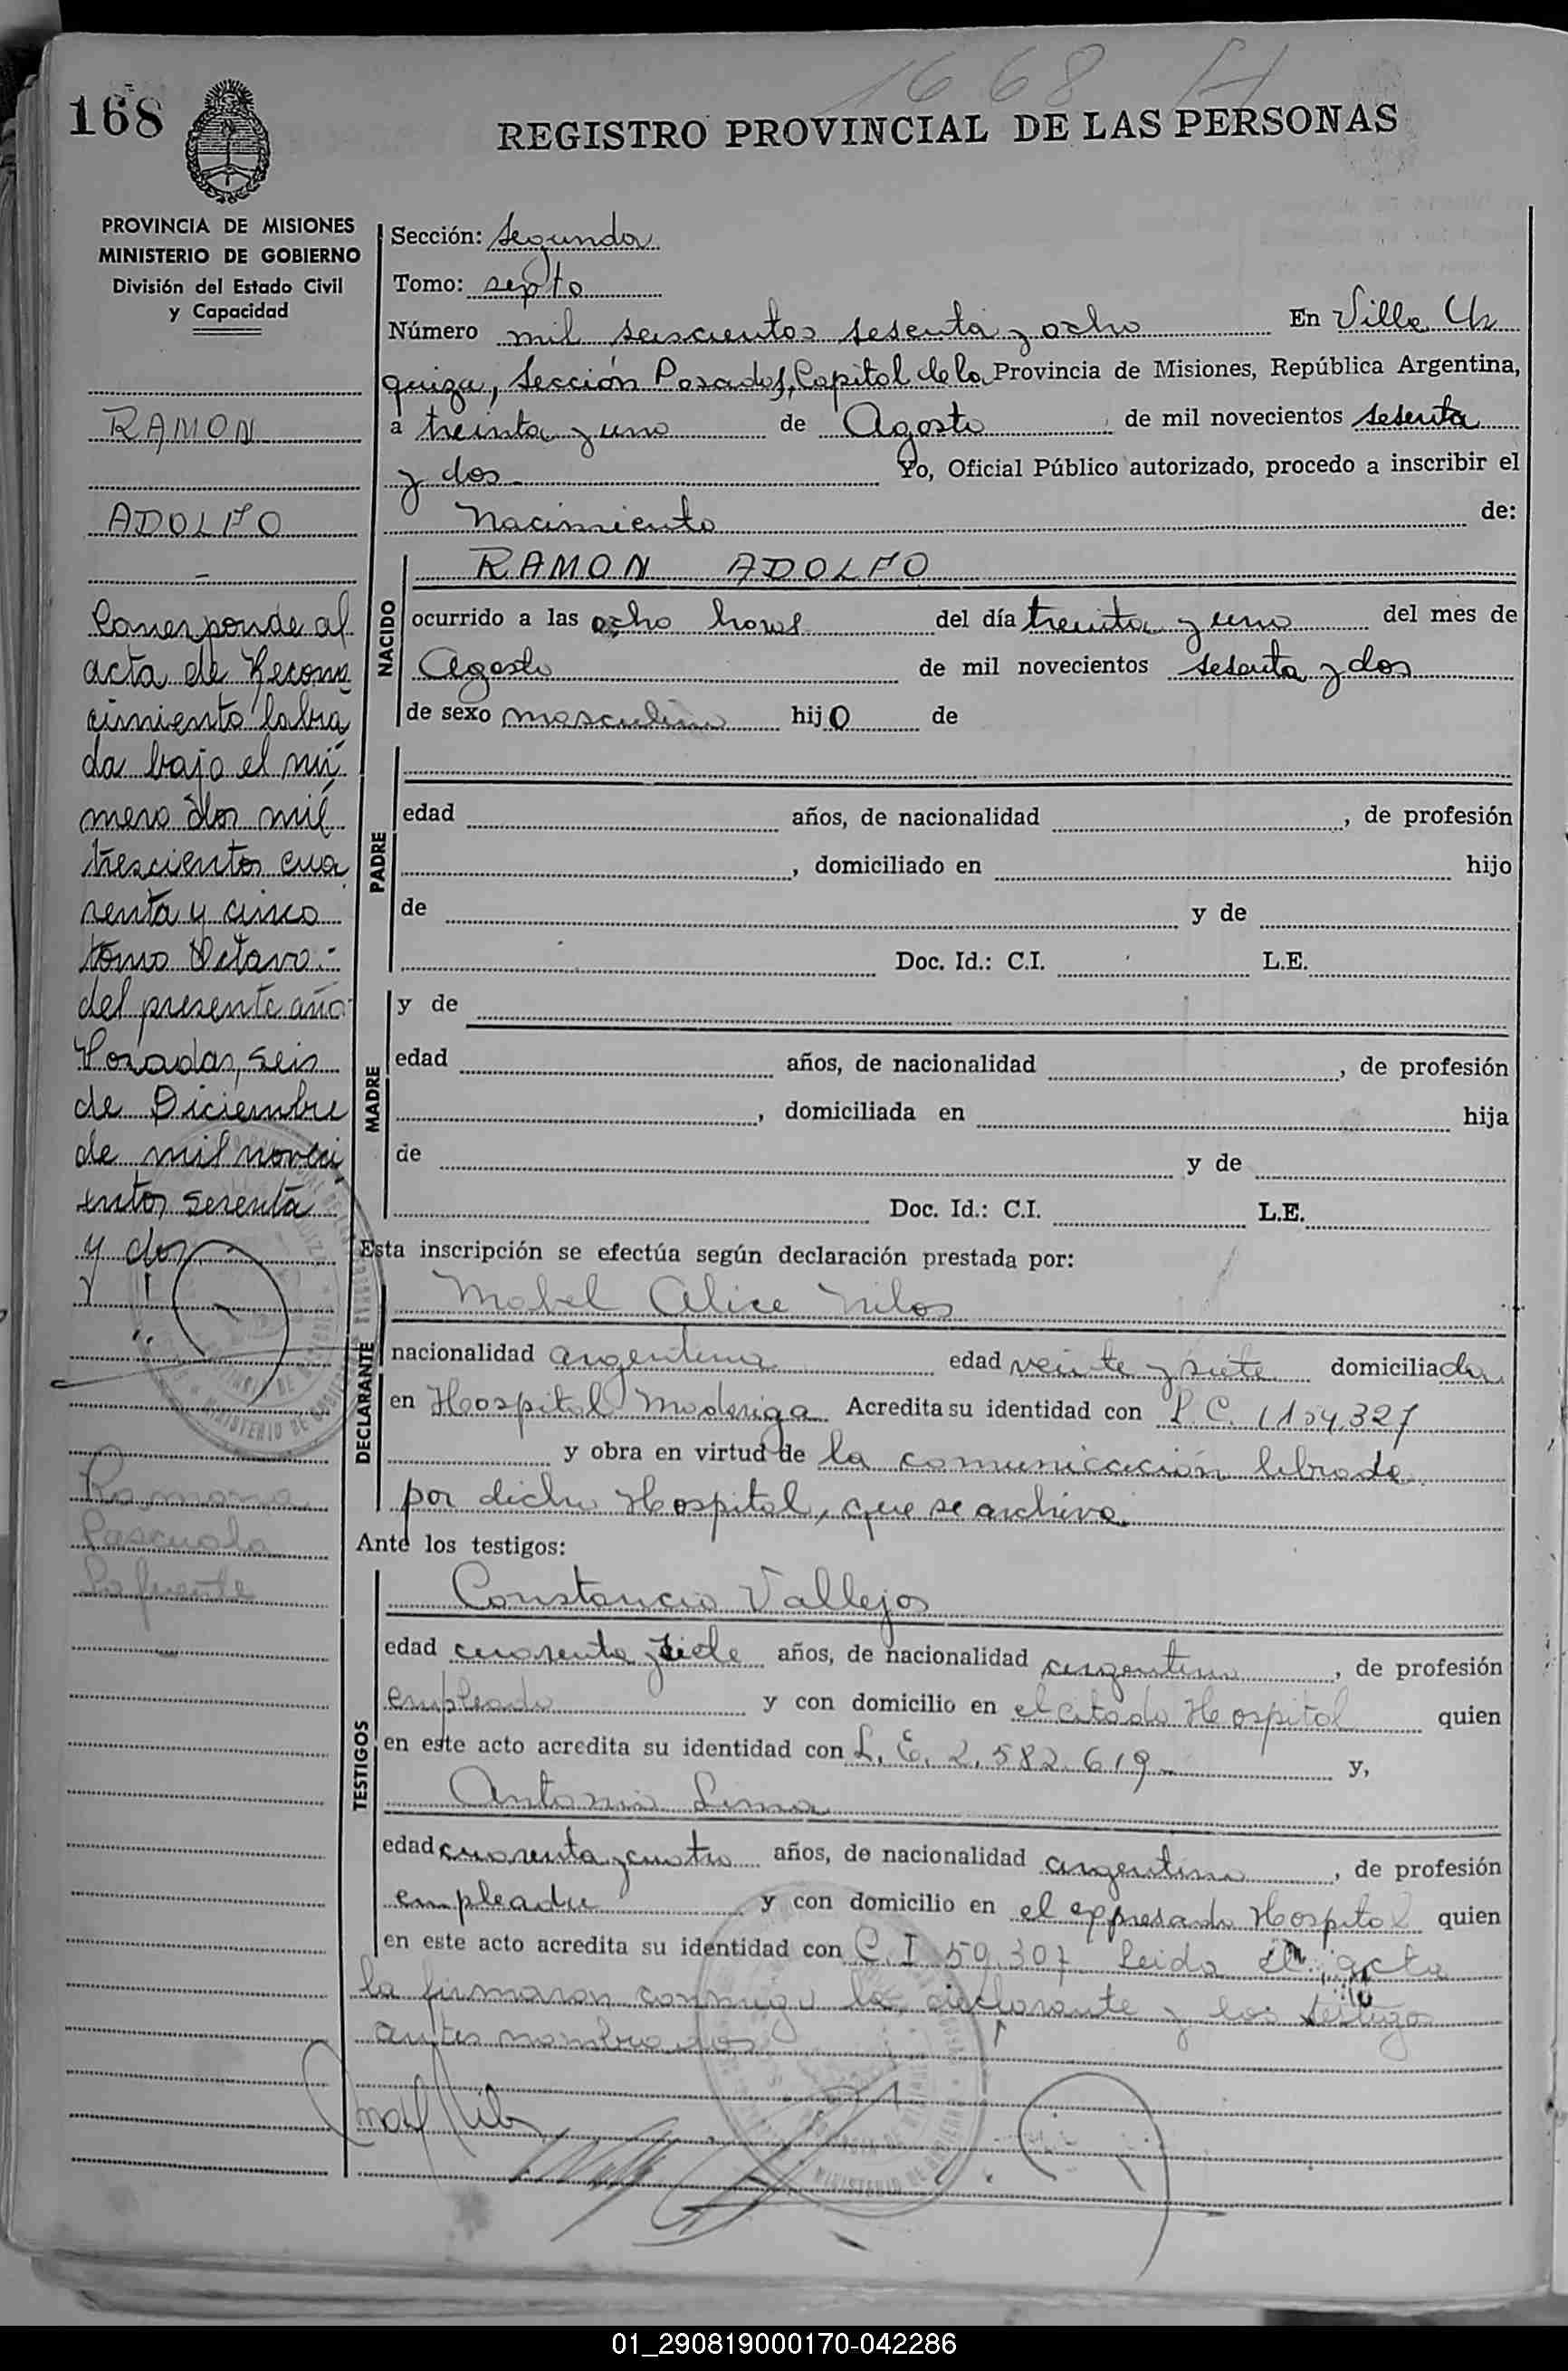 1668 H
168
REGISTRO PROVINCIAL DE LAS PERSONAS
PROVINCIA DE MISIONES
MINISTERIO DE GOBIERNO
División del Estado Civil
y Capacidad
RAMON
ADOLFO
Corresponde al
acta de Recono
cimiento labra
da bajo el nú
mero dos mil
trescientos cua
renta y cinco
tomo Octavo.-
del presente año
Posadas, seis
de Diciembre
de mil noveci
entos sesenta
y dos
Ramona
Pascuala
Lafuente
Sección: Segunda
Tomo: septo
Número mil seiscientos sesenta y ocho En Villa Ur
quiza, Sección Posadas, Capital de la Provincia de Misiones, República Argentina,
a treinta y uno de Agosto de mil novecientos sesenta
y dos- Yo, Oficial Público autorizado, procedo a inscribir el
Nacimiento de:
NACIDO
RAMON ADOLFO
ocurrido a las ocho horas del día treinta y uno del mes de
Agosto de mil novecientos sesenta y dos
de sexo masculino hijo de
PADRE
edad años, de nacionalidad , de profesión
, domiciliado en hijo
de y de
Doc. Id.: C.I. L.E.
MADRE
y de
edad años, de nacionalidad , de profesión
, domiciliada en hija
de y de
Doc. Id.: C.I. L.E.
Esta inscripción se efectúa según declaración prestada por:
DECLARANTE
Mabel Alice
nacionalidad argentina edad veinte y siete domiciliada
en Hospital Madariaga Acredita su identidad con L.C. 1104,327
y obra en virtud de la comunicación librada
por dicho Hospital, que se archiva.
Ante los testigos:
TESTIGOS
Constancio Vallejos
edad cuarenta y siete años, de nacionalidad argentino , de profesión
empleado y con domicilio en el citado Hospital quien
en este acto acredita su identidad con L.E. 2.582.619- y,
Antonio Lima
edad cuarenta y cuatro años, de nacionalidad argentino , de profesión
empleado y con domicilio en el expresado Hospital quien
en este acto acredita su identidad con C.I 59.307 Leida el acta
la firmaron conmigo la declarante y los testigos
antes nombrados
01_290819000170-042286